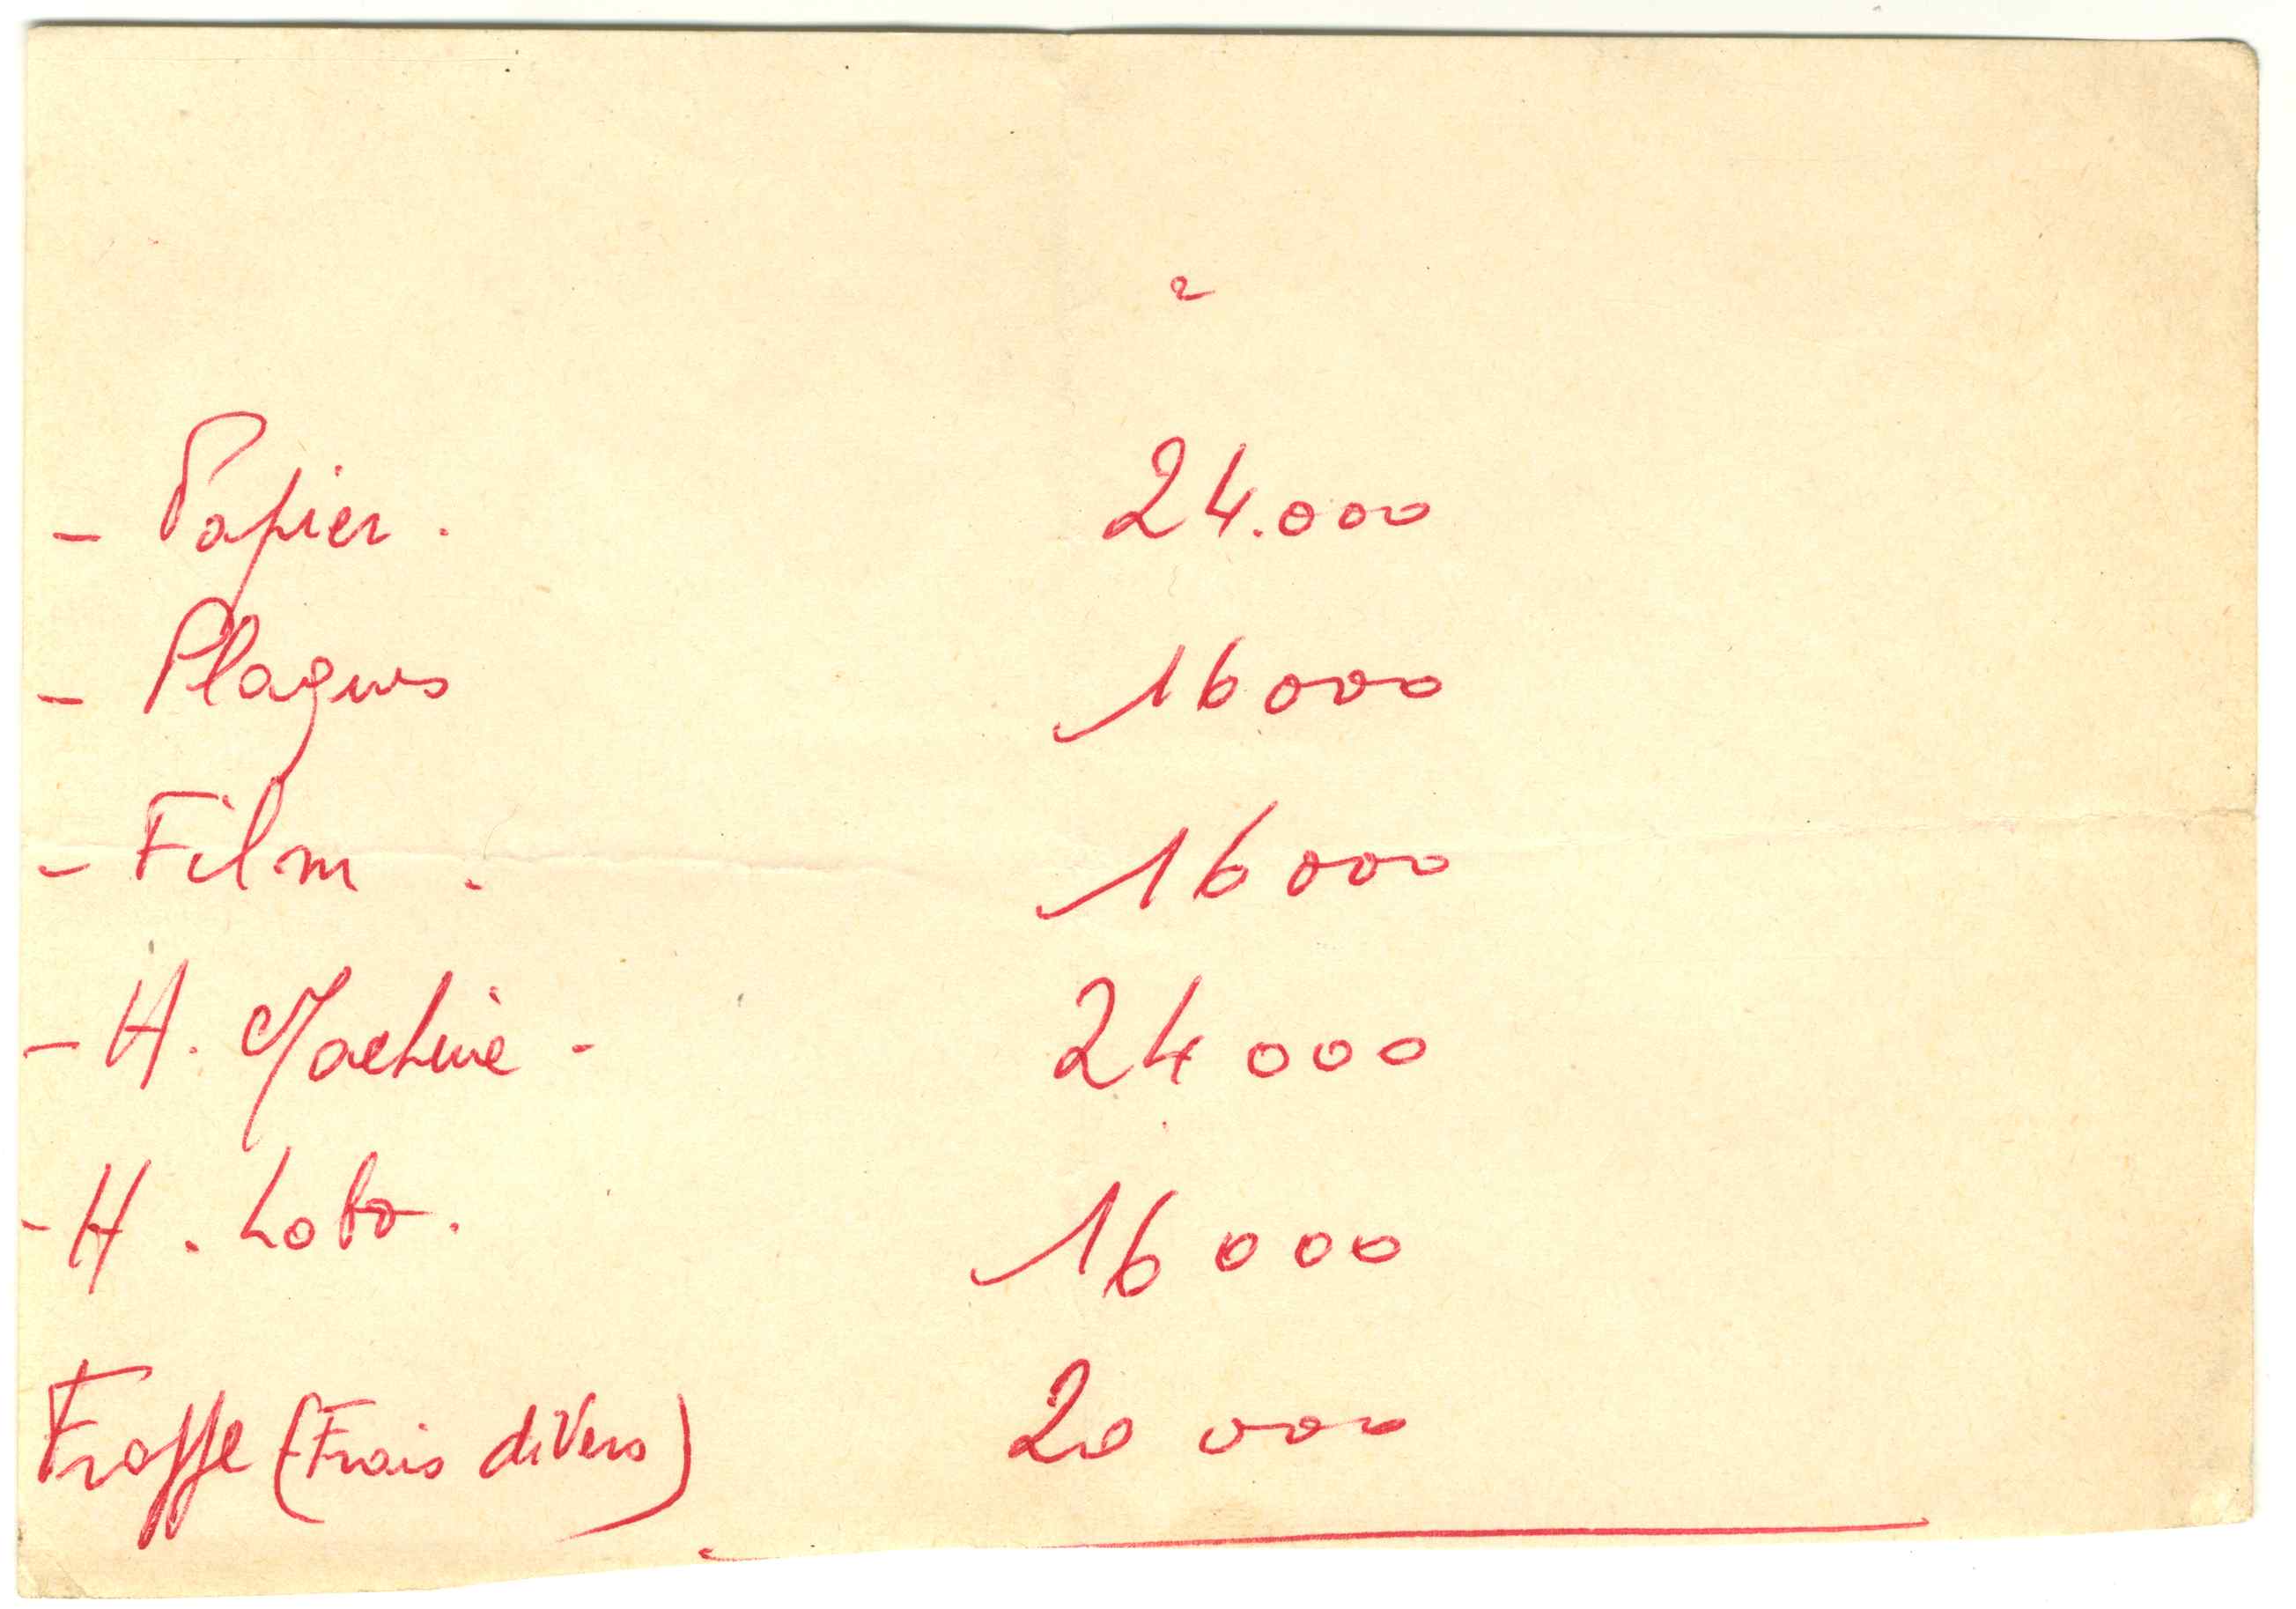 2
- Papier. 24.000
- Plaques 16000
- Film. 16000
- H. Machine - 24000
- H. Labo. 16000
Frappe (Frais divers) 20 000